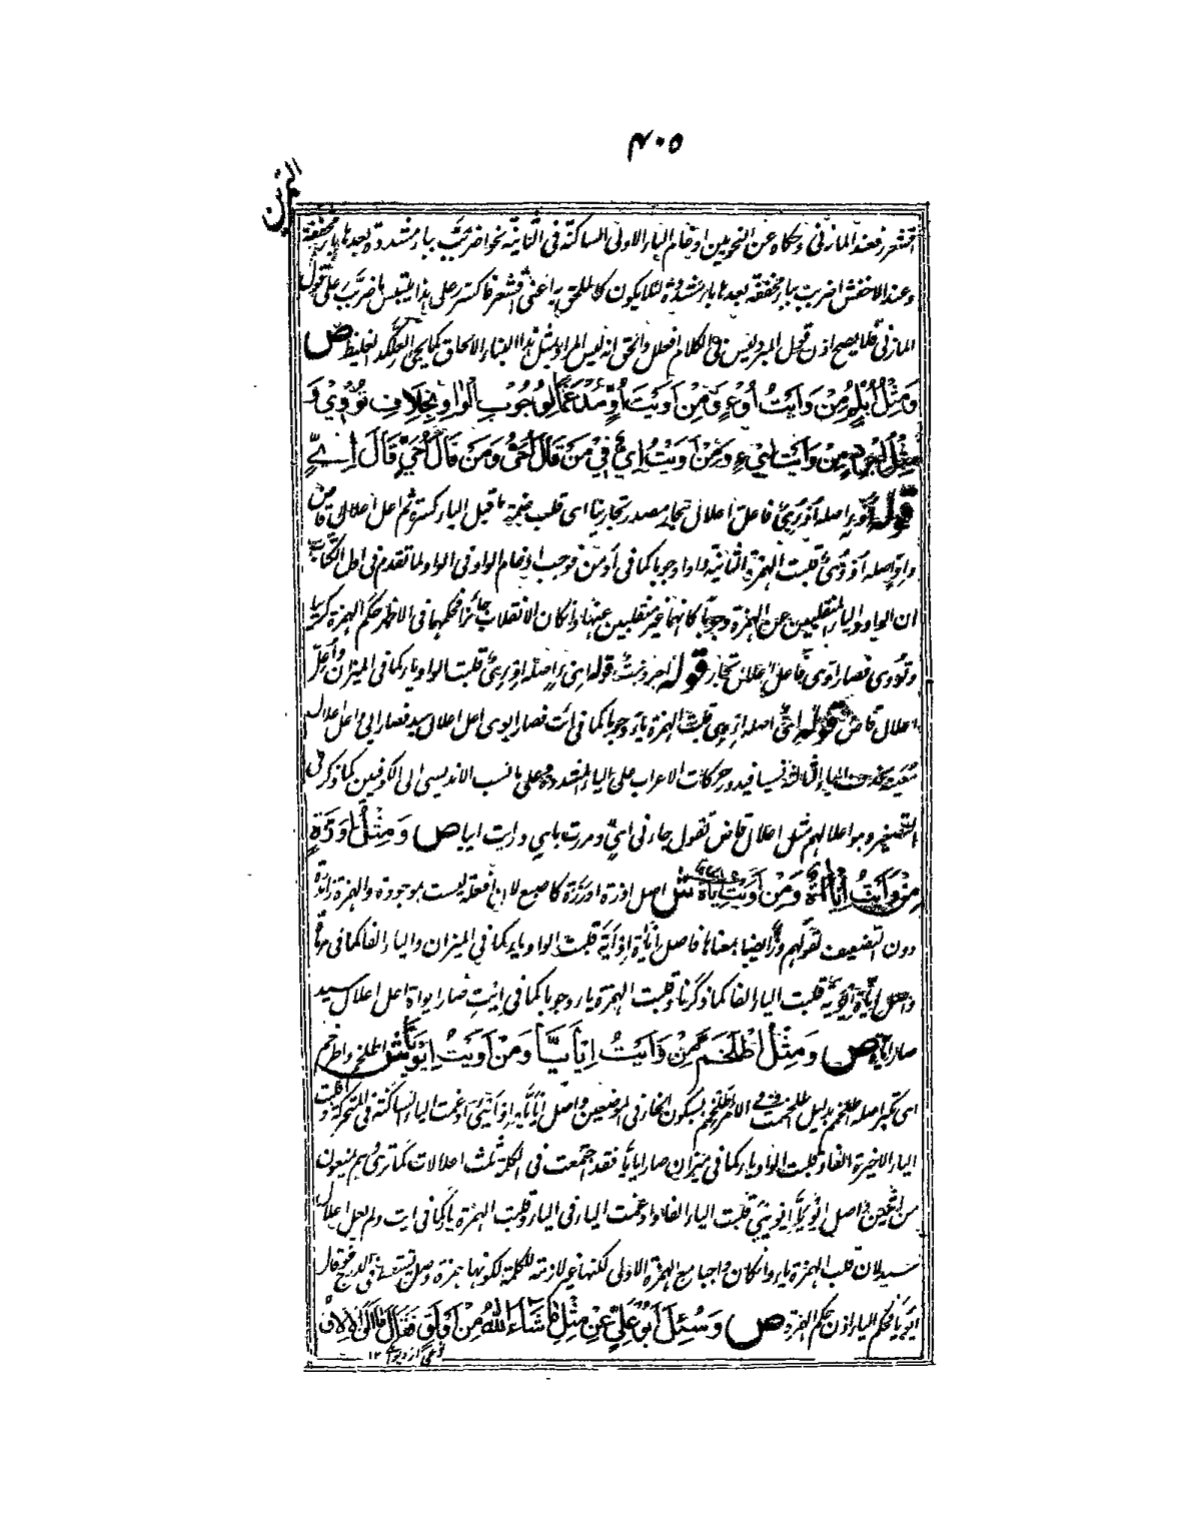 ٤٠٥
اقشعرر فعند المازنى وحكاه عن النحويين ادغام الباء الاولى الساكنة فى الثانية نحو اضربّب بباء مشددة بعدها باء مخففة
وعند الاخفش اضربّب بباء مخففة بعدها باء مشددة لئلا يكون كالملحق به اعنى اقشعر فاكسر على هذا يلتبس باضربّب على قول
المازنى فلا يصح اذن قول المبرد ليس فى الكلام افعلل والحق انه ليس المراد بمثل هذا البناء الالحاق كما يجئ العكوك الغليظ ص
وَمِثْلُ أُبْلُمٍ مِنْ وَأَيْتُ أُوْءٍ وَمِنْ أَوَيْتُ أُوٍّ مُدْغَمًا لِوُجُوْبِ الْوَاوِ بِخِلَافِ تُوْوِيْ وَ
مِثْلُ إِجْرِدٍ مِنْ وَأَيْتُ إِيْءٍ وَمِنْ أَوَيْتُ إِيٌّ فِيْ مَنْ قَالَ أُحَيٌّ وَمَنْ قَالَ أُحَيٍّ قَالَ إِيٍّ
قوله أُوْءٍ اصله أُوْءُيٌ فاعل اعلال تجار مصدر تجارينا اى قلب ضمة ما قبل الياء كسرة ثم اعل اعلال قاض
واوٍّ اصله أُؤْوُيٌ قلبت الهمزة الثانية واوا وجوبا كما فى أومن فوجب ادغام الواو فى الواو لما تقدم فى اول الكتاب
ان الواو والياء المنقلبتين عن الهمزة وجوبا كانهما غير منقلبتين عنها وان كان الانقلاب جائزا فحكمها فى الاظهر حكم الهمزة كريا
وتؤوى فصار اوى فاعل اعلال تجار قوله اجرد نبت قوله ايئ اصله اوئى قلبت الواو ياء كما فى الميزان واعل
اعلال قاض قوله اىّ اصله ائوى قلبت الهمزة ياء وجوبا كما فى ائت فصار ايوى اعل اعلال سيد فصار ايى واعل اعلال
معية بحذف الياء الثالثة نسيا فيدور حركات الاعراب على الياء المشددة وعلى ما نسب الاندلسى الى الكوفيين كما ذكر فى
التصغير وهو اعلالهم مثل اعلال قاض تقول جاءنى اىٍّ ومررت باىٍّ ورايت اييا ص وَمِثْلُ إِوَزَّةٍ
مِنْ وَأَيْتُ إِيْآةٌ وَمِنْ أَوَيْتُ إِيَّاةٌ ش اصل اوزة اوززة كاصبع لان افعلة ليست بموجودة والهمزة زائدة
دون التضعيف لقولهم وز ايضا بمعناها فاصل ايآة اوأية قلبت الواو ياء كما فى الميزان والياء الفا كما فى مرماة
واصل اياة ائوية قلبت الياء الفا كما ذكرنا وقلبت الهمزة ياء وجوبا كما فى ايت فصار ايواة اعل اعلال سيد
صار اياة ص وَمِثْلُ اطْلَخَمَّ مِنْ وَأَيْتُ اِيْأَيَّا وَمِنْ أَوَيْتُ اِيْوَيَّا ش اطلخم واطرخم
اى تكبر اصله اطلخمم بدليل اطلخممت وفى الامر اطلخمم بسكون الخاء فى الموضعين واصل ايأيا اوأيّى ادغمت الياء الساكنة فى المتحركة وقلبت
الياء الاخيرة الفا وقلبت الواو ياء كما فى ميزان صار ايأيا فقد اجتمعت فى الكلمة ثلث اعلالات كما ترى وهم يمنعون
من اعلالين واصل ايويا ائويّى قلبت الياء الفا وادغمت الياء فى الياء وقلبت الهمزة ياء كما فى ايت ولم يعل اعلال
سيد لان قلب الهمزة ياء وان كان واجبا مع الهمزة الاولى لكنها غير لازمة للكلمة لكونها همزة وصل تسقط فى الدرج نحو قال
ايويا فحكم الياء اذن حكم الهمزة ص وَسُئِلَ أَبُوْ عَلِيٍّ عَنْ مِثْلِ مَا شَاءَ اللهُ مِنْ أَوْلَقَ فَقَالَ مَا أَلِقَ الْإِلَاقُ